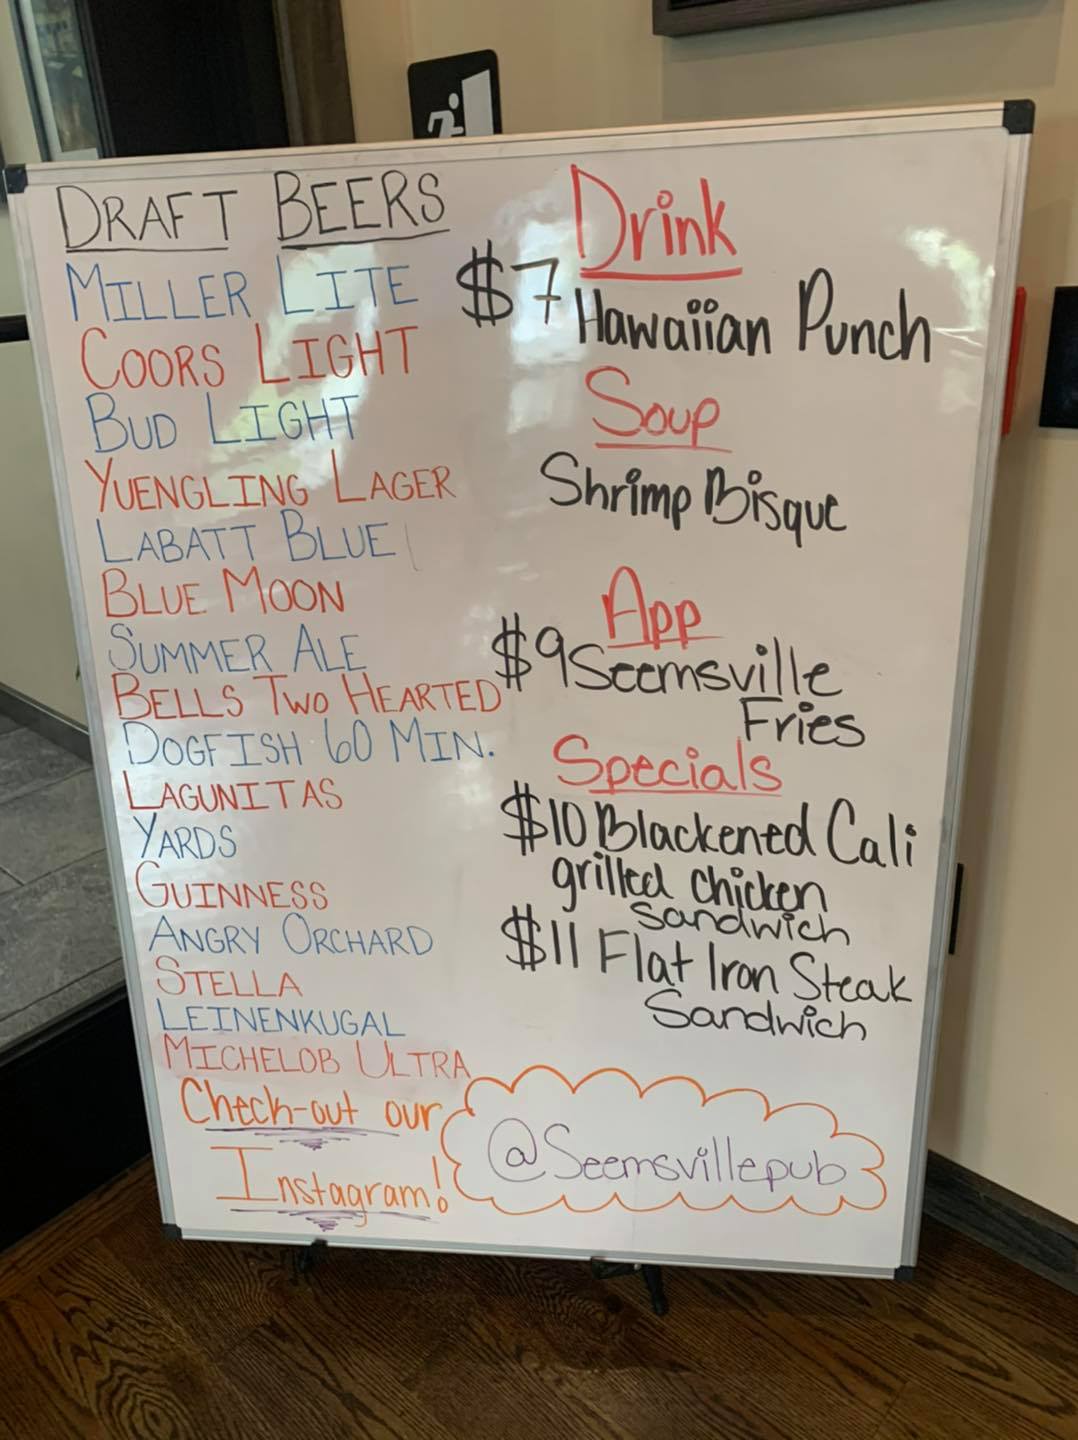 DRAFT BEERS
MILLER LITE
COORS LIGHT
BUD LIGHT
YUENGLING LAGER
LABATT BLUE
BLUE MOON
SUMMER ALE
BELLS TWO HEARTED
DOGFISH 60 MIN.
LAGUNITAS
YARDS
GUINNESS
ANGRY ORCHARD
STELLA
LEINENKUGAL
MICHELOB ULTRA
Check-out our
Instagram!
@Seemsvillepub
Drink
$7 Hawaiian Punch
Soup
Shrimp Bisque
App
$9 Seemsville
Fries
Specials
$10 Blackened Cali
grilled chicken
sandwich
$11 Flat Iron Steak
Sandwich